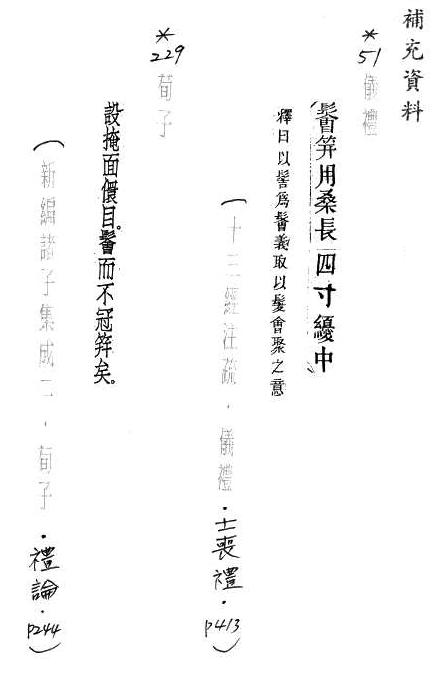 補充資料
*51 儀禮
鬠笄用桑長四寸纋中
釋曰以髻為鬠義取以髮會聚之意
(十三經注疏.儀禮.士喪禮.p413)
*229 荀子
設掩面儇目。鬠而不冠笄矣。
(新編諸子集成二.荀子.禮論.p244)